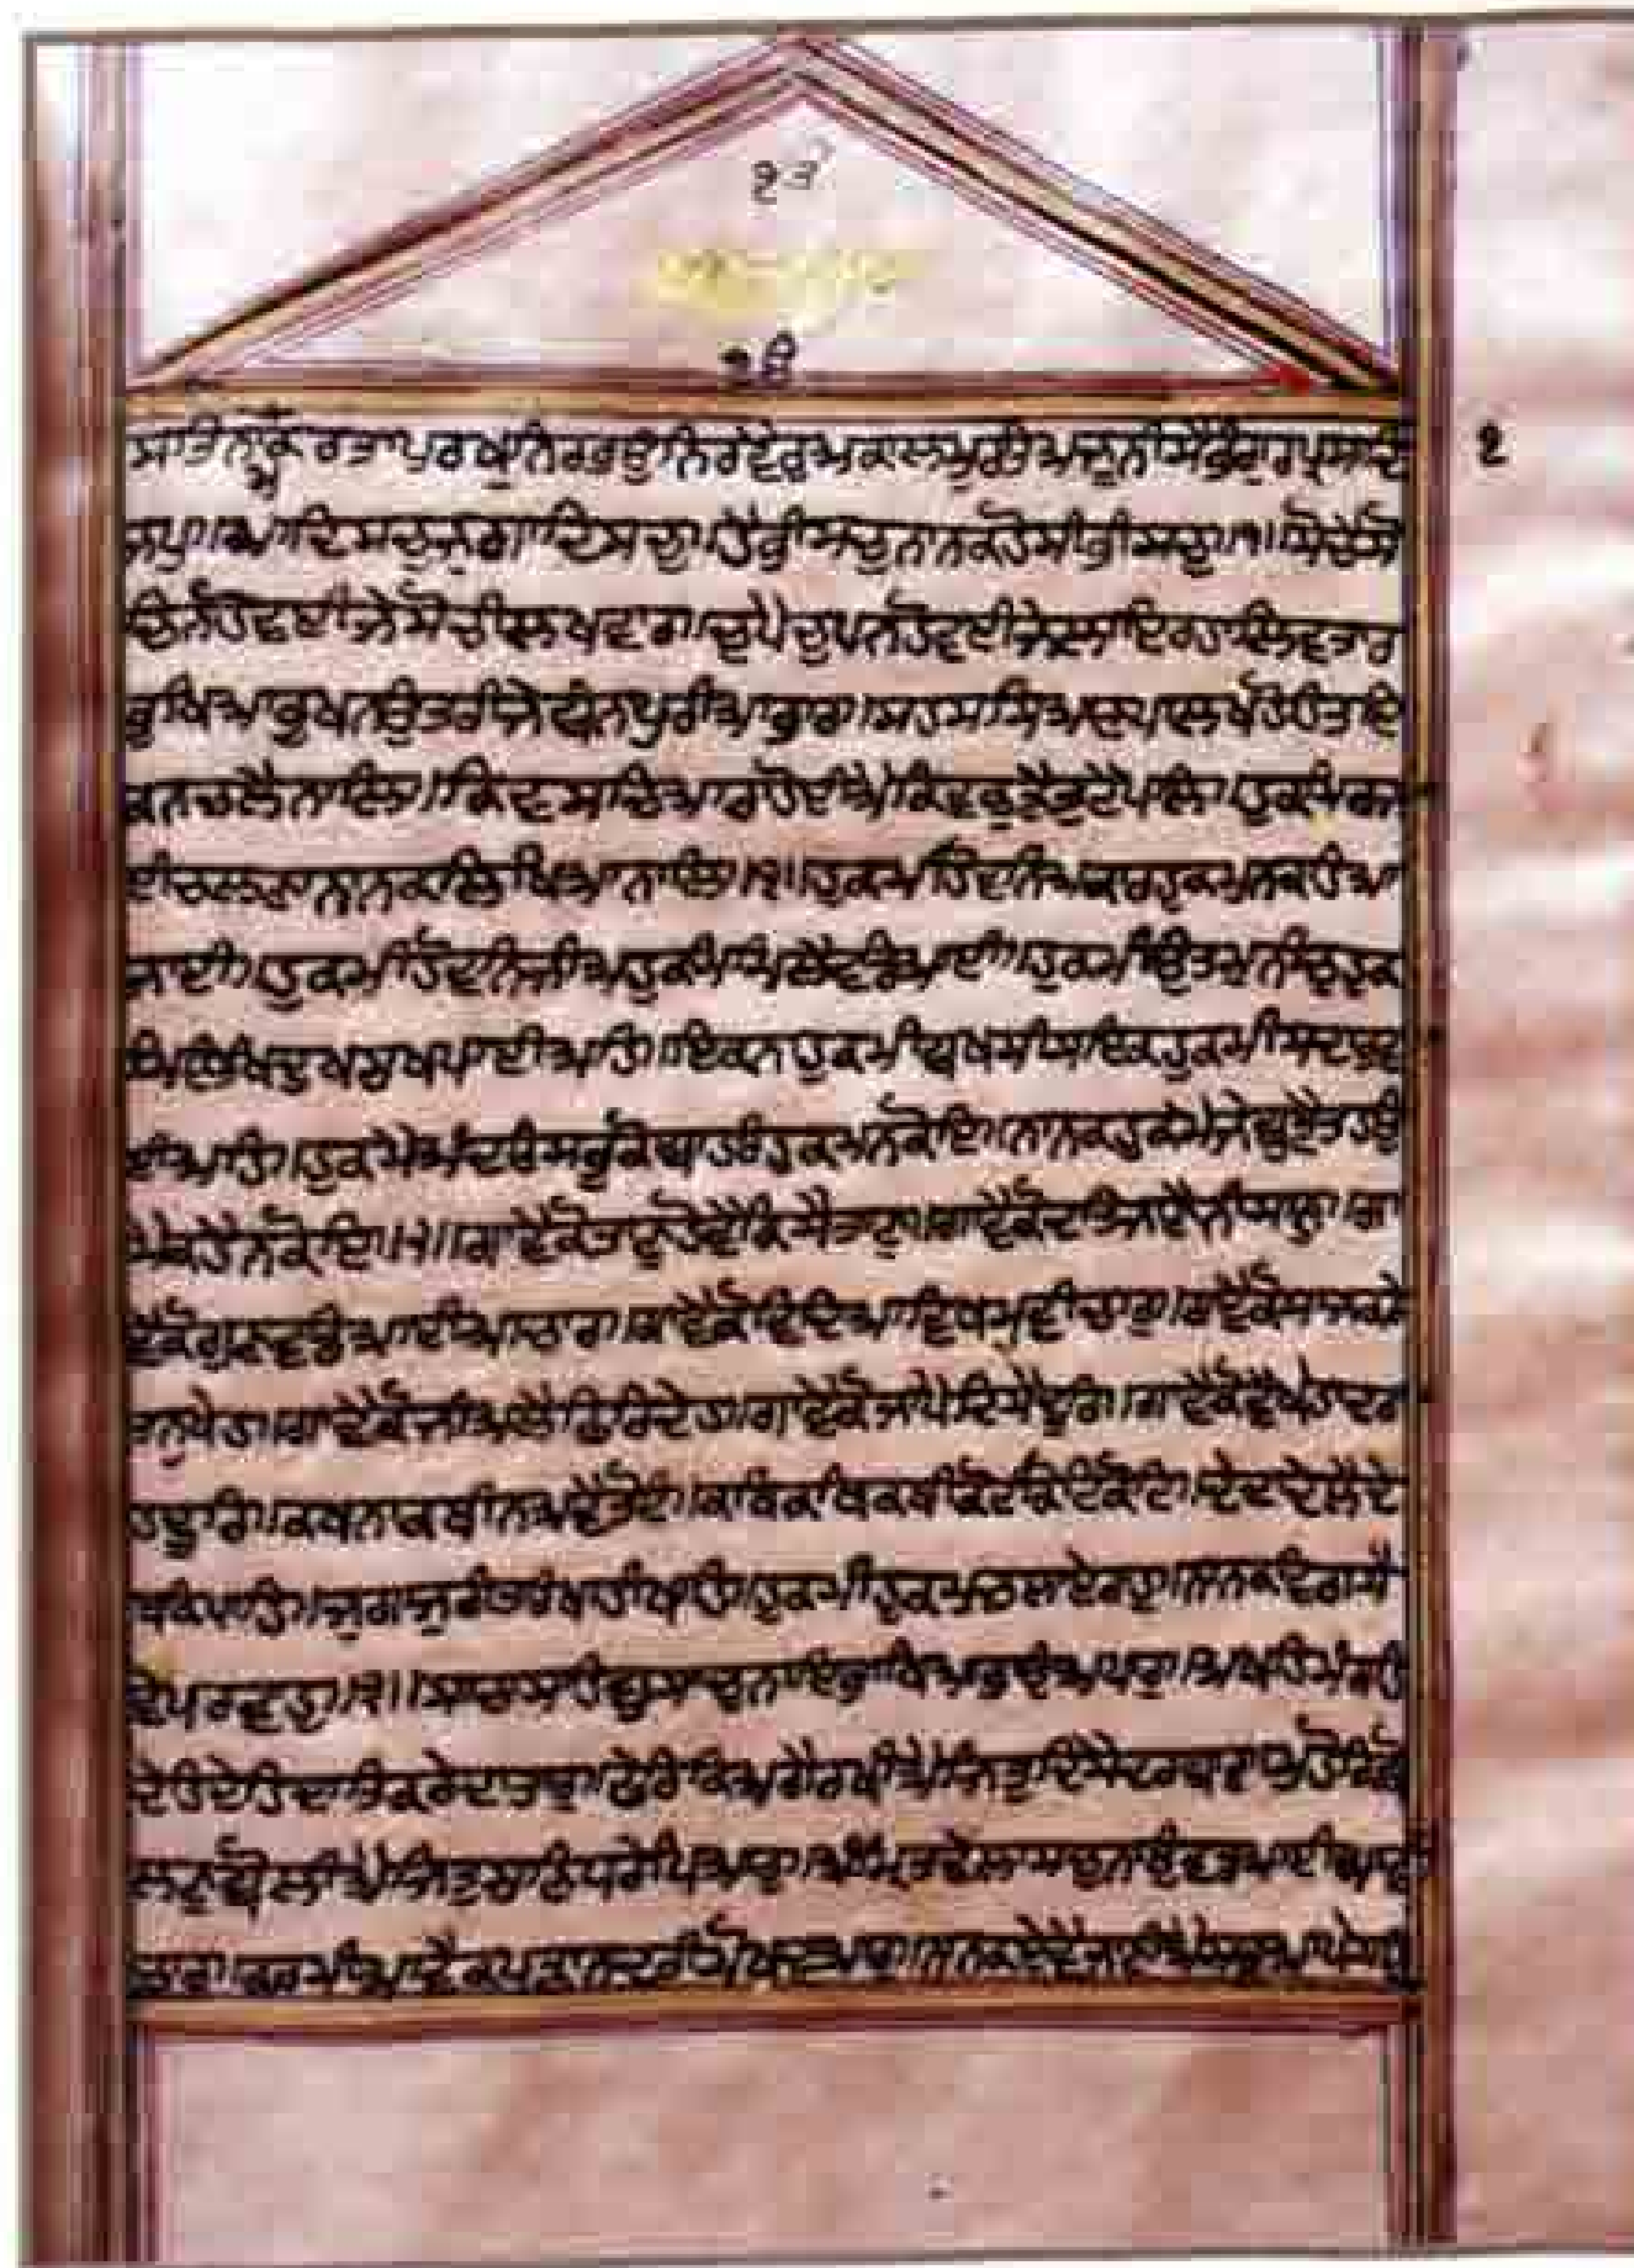 ੨੩
ੴ
ਸਤਿਨਾਮੁਕਰਤਾਪੁਰਖੁਨਿਰਭਉਨਿਰਵੈਰੁਅਕਾਲਮੂਰਤਿਅਜੂਨੀਸੈਭੰਗੁਰਪ੍ਰਸਾਦਿ ੨
ਜਪੁ॥ਆਦਿਸਚੁਜੁਗਾਦਿਸਚੁ॥ਹੈਭੀਸਚੁਨਾਨਕਹੋਸੀਭੀਸਚੁ॥੧॥ਸੋਚੈਸੋ
ਚਿਨਹੋਵਈਜੇਸੋਚੀਲਖਵਾਰ॥ਚੁਪੈਚੁਪਨਹੋਵਈਜੇਲਾਇਰਹਾਲਿਵਤਾਰ
ਭੁਖਿਆਭੁਖਨਉਤਰੀਜੇਬੰਨਾਪੁਰੀਆਭਾਰ॥ਸਹਸਸਿਆਣਪਾਲਖਹੋਹਿਤਾਇ
ਕਨਚਲੈਨਾਲਿ॥ਕਿਵਸਚਿਆਰਾਹੋਈਐਕਿਵਕੂੜੈਤੁਟੈਪਾਲਿ॥ਹੁਕਮਿਰਜਾ
ਈਚਲਣਾਨਾਨਕਲਿਖਿਆਨਾਲਿ॥੧॥ਹੁਕਮੀਹੋਵਨਿਆਕਾਰਹੁਕਮੁਨਕਹਿਆ
ਜਾਈ॥ਹੁਕਮੀਹੋਵਨਿਜੀਅਹੁਕਮਿਮਿਲੈਵਡਿਆਈ॥ਹੁਕਮੀਉਤਮੁਨੀਚੁਹੁਕ
ਮਿਲਿਖਿਦੁਖਸੁਖਪਾਈਅਹਿ॥ਇਕਨਾਹੁਕਮੀਬਖਸੀਸਇਕਿਹੁਕਮੀਸਦਾਭਵ
ਾਈਅਹਿ॥ਹੁਕਮੈਅੰਦਰਿਸਭੁਕੋਬਾਹਰਿਹੁਕਮਨਕੋਇ॥ਨਾਨਕਹੁਕਮੈਜੇਬੁਝੈਤਹਉ
ਮੈਕਹੈਨਕੋਇ॥੨॥ਗਾਵੈਕੋਤਾਣੁਹੋਵੈਕਿਸੈਤਾਣੁ॥ਗਾਵੈਕੋਦਾਤਿਜਾਣੈਨੀਸਾਣੁ॥ਗਾ
ਵੈਕੋਗੁਣਵਡਿਆਈਆਚਾਰ॥ਗਾਵੈਕੋਵਿਦਿਆਵਿਖਮੁਵੀਚਾਰੁ॥ਗਾਵੈਕੋਸਾਜਿਕਰੇ
ਤਨੁਖੇਹ॥ਗਾਵੈਕੋਜੀਅਲੈਫਿਰਿਦੇਹ॥ਗਾਵੈਕੋਜਾਪੈਦਿਸੈਦੂਰਿ॥ਗਾਵੈਕੋਵੇਖੈਹਾਦਰਾ
ਹਦੂਰਿ॥ਕਥਨਾਕਥੀਨਆਵੈਤੋਟਿ॥ਕਥਿਕਥਿਕਥੀਕੋਟੀਕੋਟਿਕੋਟਿ॥ਦੇਦਾਦੇਲੈਦੇ
ਥਕਿਪਾਹਿ॥ਜੁਗਾਜੁਗੰਤਰਿਖਾਹੀਖਾਹਿ॥ਹੁਕਮੀਹੁਕਮੁਚਲਾਏਰਾਹੁ॥ਨਾਨਕਵਿਗਸੈ
ਵੇਪਰਵਾਹੁ॥੩॥ਸਾਚਾਸਾਹਿਬੁਸਾਚੁਨਾਇਭਾਖਿਆਭਾਉਅਪਾਰੁ॥ਆਖਹਿਮੰਗਹਿ
ਦੇਹਿਦੇਹਿਦਾਤਿਕਰੇਦਾਤਾਰੁ॥ਫੇਰਿਕਿਅਗੈਰਖੀਐਜਿਤੁਦਿਸੈਦਰਬਾਰੁ॥ਮੁਹੌਕਿਬੋ
ਲਣੁਬੋਲੀਐਜਿਤੁਸੁਣਿਧਰੇਪਿਆਰੁ॥ਅੰਮ੍ਰਿਤਵੇਲਾਸਚੁਨਾਉਵਡਿਆਈਵੀ
ਚਾਰੁ॥ਕਰਮੀਆਵੈਕਪੜਾਨਦਰੀਮੋਖੁਦੁਆਰੁ॥ਨਾਨਕਏਵੈਜਾਣੀਐਸਭੁਆਪੇਸਚਿ